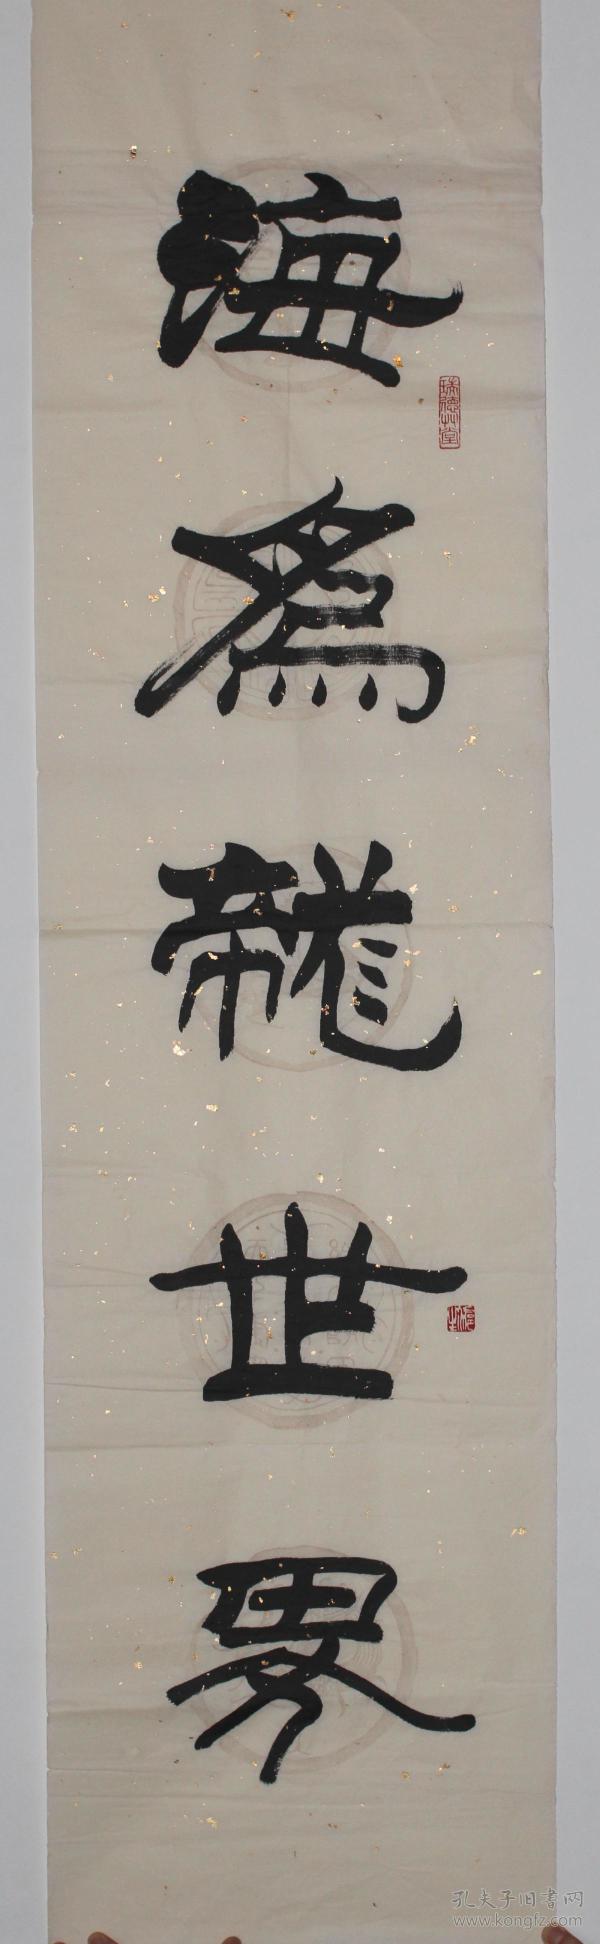 海為龍世界
瑞德草堂
孔夫子旧书网
www.kongfz.com